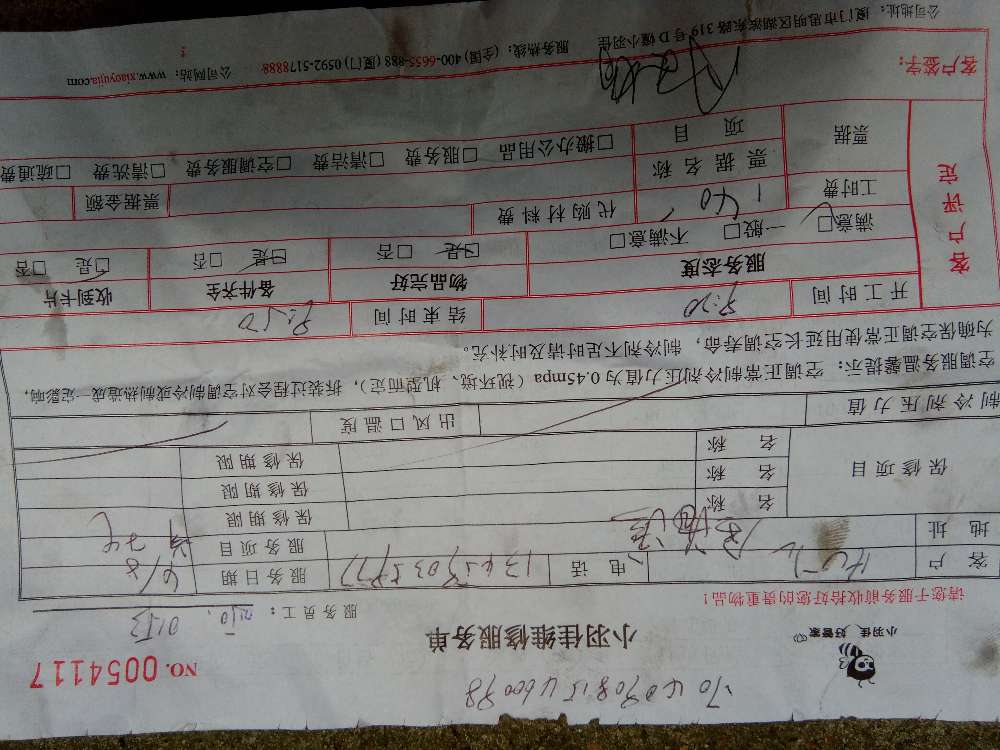 小羽佳 好管家
小羽佳维修服务单
NO. 0054117
服务员工：
0153
请您于服务前收拾好您的贵重物品！
客户 电话 服务日期 6/8
地址 服务项目
保修项目 名称 保修期限
名称 保修期限
名称 保修期限
制冷剂压力值 出风口温度
空调服务温馨提示：空调正常制冷剂压力值为0.45mpa（视环境、机型而定），拆装过程会对空调制冷或制热造成一定影响，
为确保空调正常使用延长空调寿命，制冷剂不足时请及时补充。
开工时间 结束时间
客户评定
服务态度 物品完好 备件齐全 收到卡片
满意□ 一般□ 不满意□ □是 □否 □是 □否 □是 □否
工时费 140 代购材料费 票据金额
票据 票据名称
项目 □搬办公用品 □服务费 □清洁费 □空调服务费 □清洗费 □疏通费
客户签字：
公司地址：厦门市思明区湖滨东路319号D幢小羽佳 服务热线：(全国) 400-6655-888 (厦门) 0592-5178888 公司网站：www.xiaoyujia.com